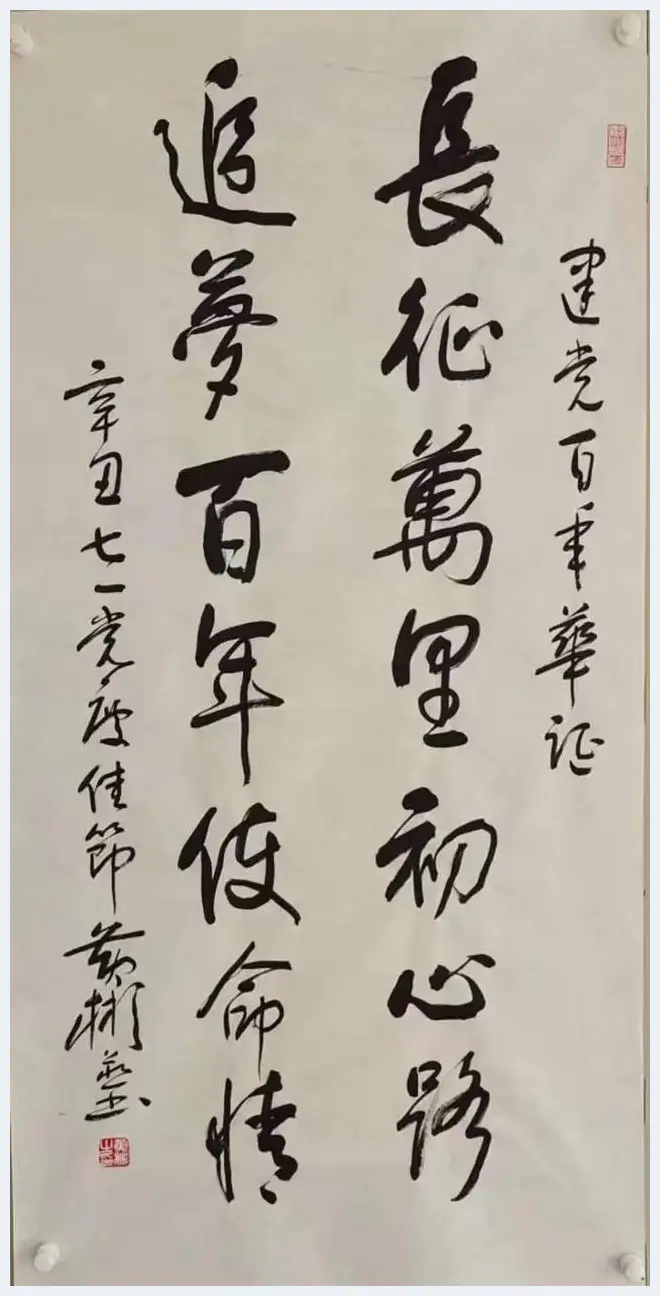 建党百年華诞
長征萬里初心路
追夢百年使命情
辛丑七一党慶佳節黄彬